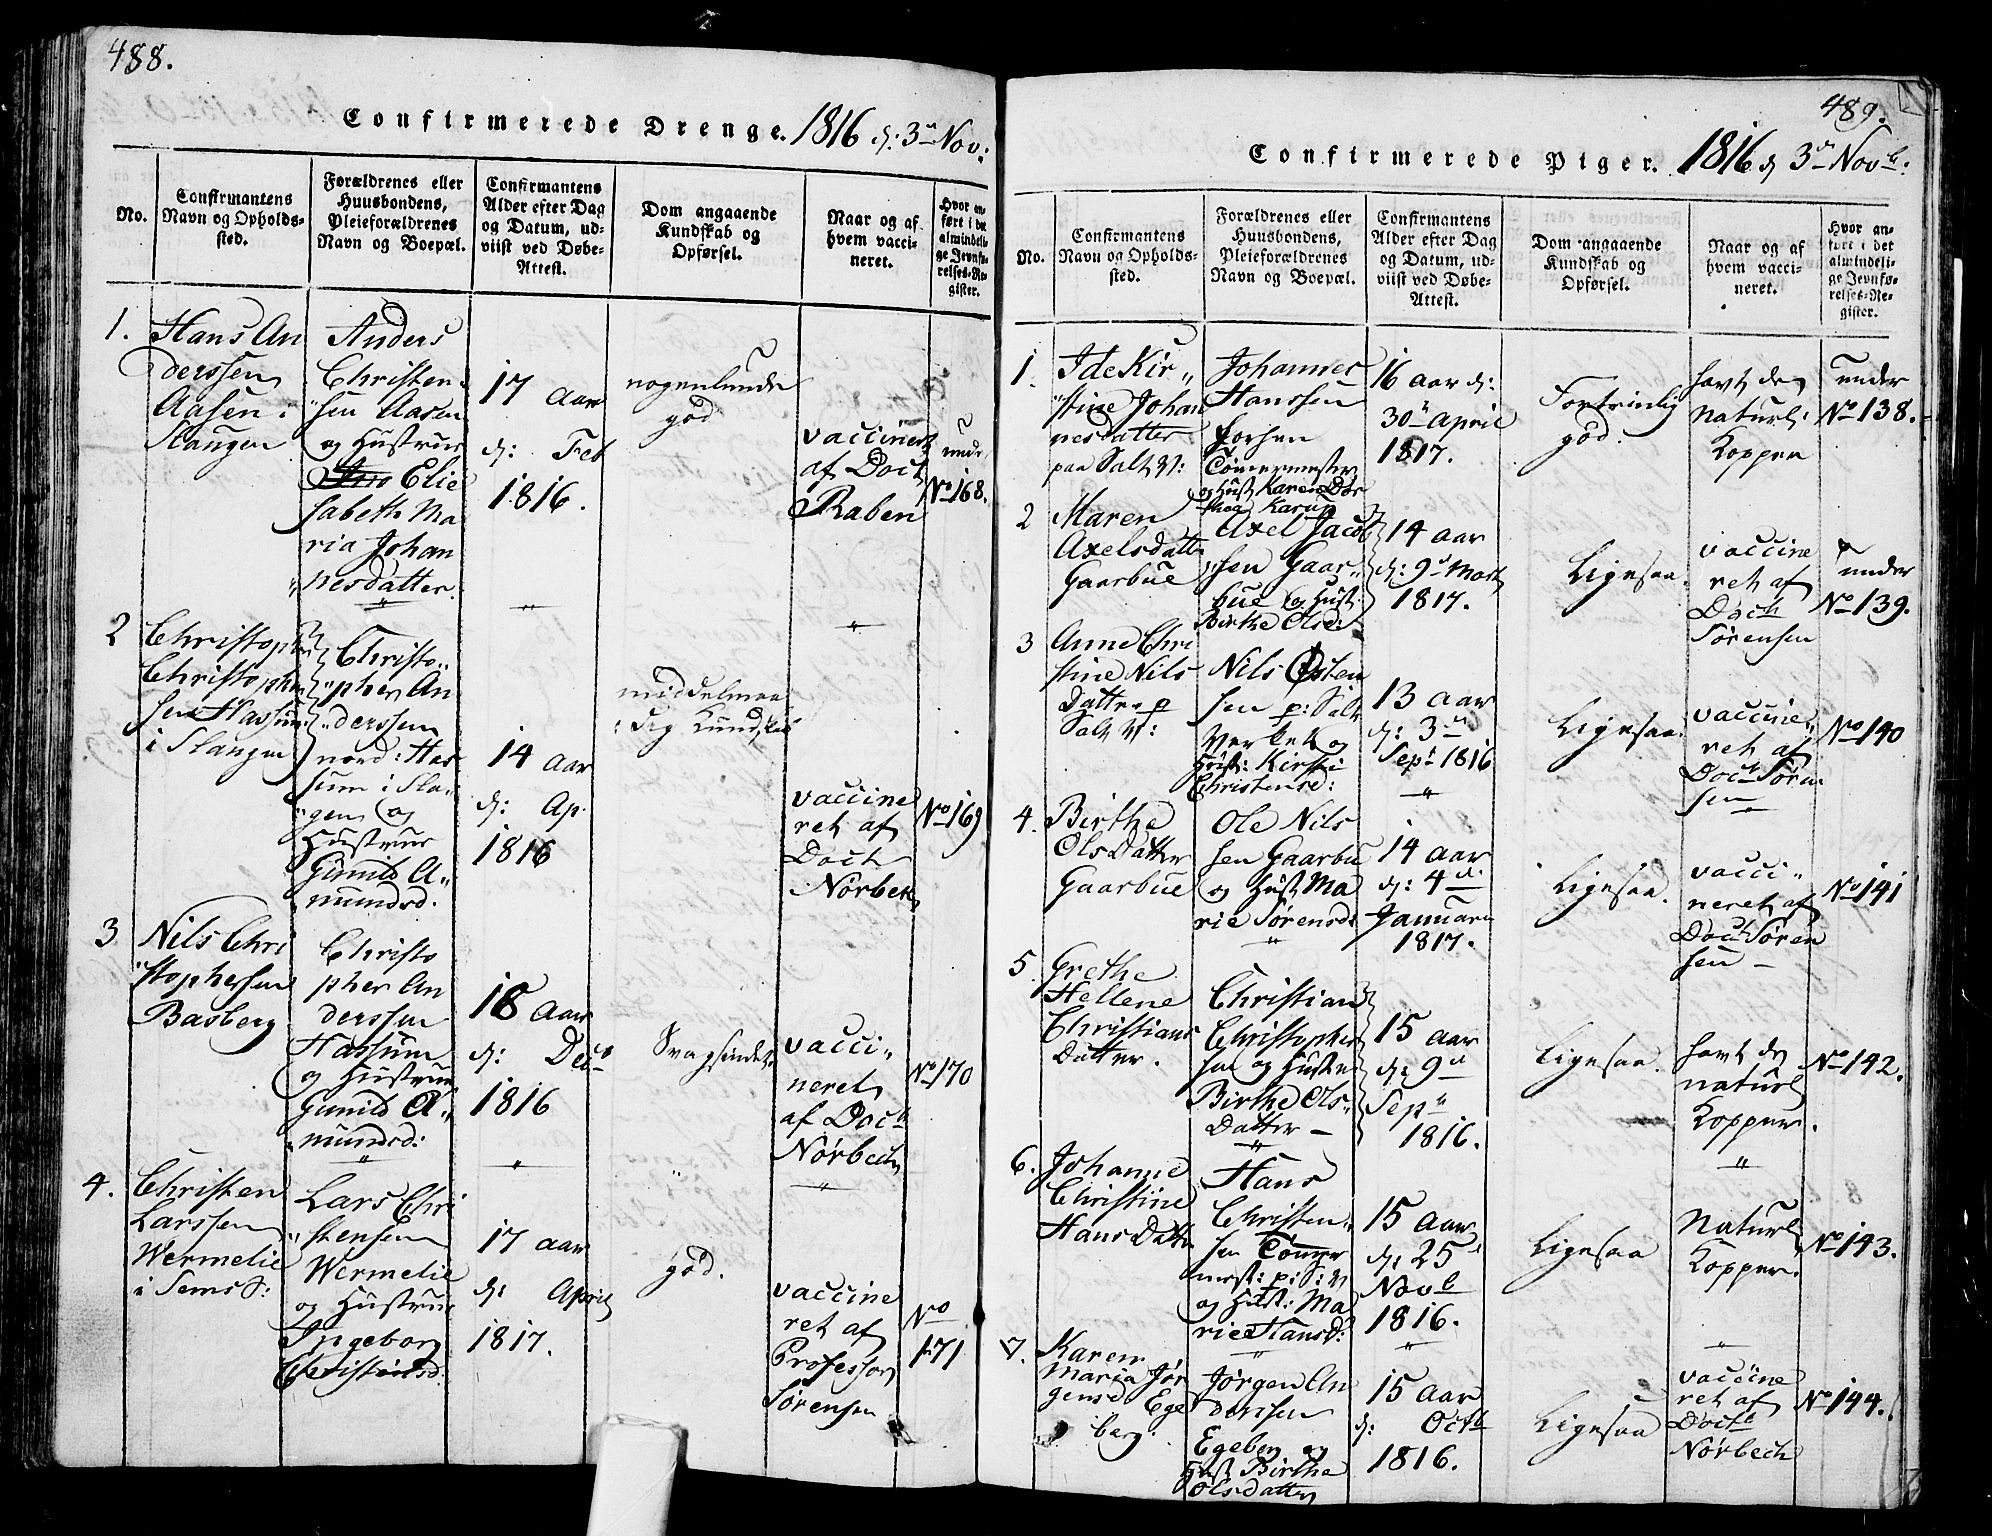 488.
Confirmerede Drenge. 1816 d: 3die Nov:
No.
Confirmantens
Navn og Opholds-
sted.
Forældrenes eller
Huusbondens,
Pleieforældrenes
Navn og Boepæl.
Confirmantens
Alder efter Dag
og Datum, ud-
viist ved Døbe-
Attest.
Dom angaaende
Kundskab og
Opførsel.
Naar og af
hvem vacci-
neret.
Hvor an-
ført i det
almindeli-
ge Jevnfø-
relses-Re-
gister.
1.
Hans An
derssen
Aasen i
Slangen
Anders
Christen-
sen Aasen
og Hustrue
Elie
sabeth Ma
ria Johan
nesdatter.
17 Aar
d: Feb
1816.
nogenlunde
god
vaccineret
af Doct
Raben
unde
No 168.
2
Christopher
Christopher
sen Hassum
i Slangen
Christo-
pher An
derssen
nord: Has
sum i Sla-
gen og
Hustrue
Gunild A-
mundsd.
14 Aar
d: Ap
1816
middelmaa
dig Kundskab
vaccine
ret af
Doct
Nørbek
No 169
3
Nils Chri
stophersen
Basberg
Christo
pher An
derssen
Hassum
og Hustrue
Gunild A-
mundsd:
18 Aar
d: Dec
1816
Svagsindet
vacci-
neret
af Doct
Nørbech
No 170
4.
Christen
Larssen
Wermelie
i Sems S:
Lars Chri
stensen
Wermelie
og Hustrue
Ingeborg
Christensd.
17 Aar
d: April
1817.
god.
vaccine
ret af
Professor
Sørensen
No
171
489.
Confirmerede Piger. 1816 d 3die Novb:
No.
Confirmantens
Navn og Opholds-
sted.
Forældrenes eller
Huusbondens,
Pleieforældrenes
Navn og Boepæl.
Confirmantens
Alder efter Dag
og Datum, ud-
viist ved Døbe-
Attest.
Dom angaaende
Kundskab og
Opførsel.
Naar og af
hvem vacci-
neret.
Hvor an-
ført i det
almindeli-
ge Jevnfø-
relses-Re-
gister.
1.
Ide Kir-
stine Johan
nesdatter
paa Salt V:
Johannes
Hanssen
Tømermester
og Hust Karen Dor
thea Karup
16 Aar d:
30te April
1817.
Fortrinlig
god.
havt de
Naturl:
Kopper
under
No 138.
2
Maren
Axelsdatter
Gaarbue
Axel Jacob
sen Gaar-
bue og Hust
Birthe Olsd:
14 Aar
d: 9de Mart
1817.
Ligesaa.
vaccine
ret af
Doct
Sørensen
under
No 139.
3
Anne Chri
stine Nils
Datter p
Salt V:
Nils Østen
sen p: Salt
Verket og
Hust: Kirsti
Christensd:
13 Aar
d: 3die
Sept 1816
Ligesaa.
vaccine
ret af
Doct Søren
sen
No 140
4.
Birthe
Ols Datter
Gaarbue
Ole Nils
sen Gaarbu
og Hust Ma
rie Sørensd:
14 Aar
d: 4de
Januari
1817.
Ligesaa.
vacci-
neret af
Doct Søren
sen
No 141
5.
Grethe
Hellene
Christians
Datter.
Christian
Christopher
sen og Hustr
Birthe Ols-
Datter
15 Aar
d: 9de
Sept
1816.
Ligesaa.
havt de
naturl
Kopper.
No 142.
6.
Johanne
Christine
Hans Datter
Hans
Christen-
sen Tømer
mest: p: S: V
og Hust: Ma
rie Hansd:
15 Aar
d: 25
Novb
1816.
Ligesaa
Naturl
Kopper.
No 143.
7.
Karen
Maria Jør
gensd Ege
berg.
Jørgen An
derssen
Egeberg og
Hust Birtha
Olsdatter
15 Aar
d: Octb
1816.
Ligesaa
vaccine
ret af
Doct
Nørbech
No 144.